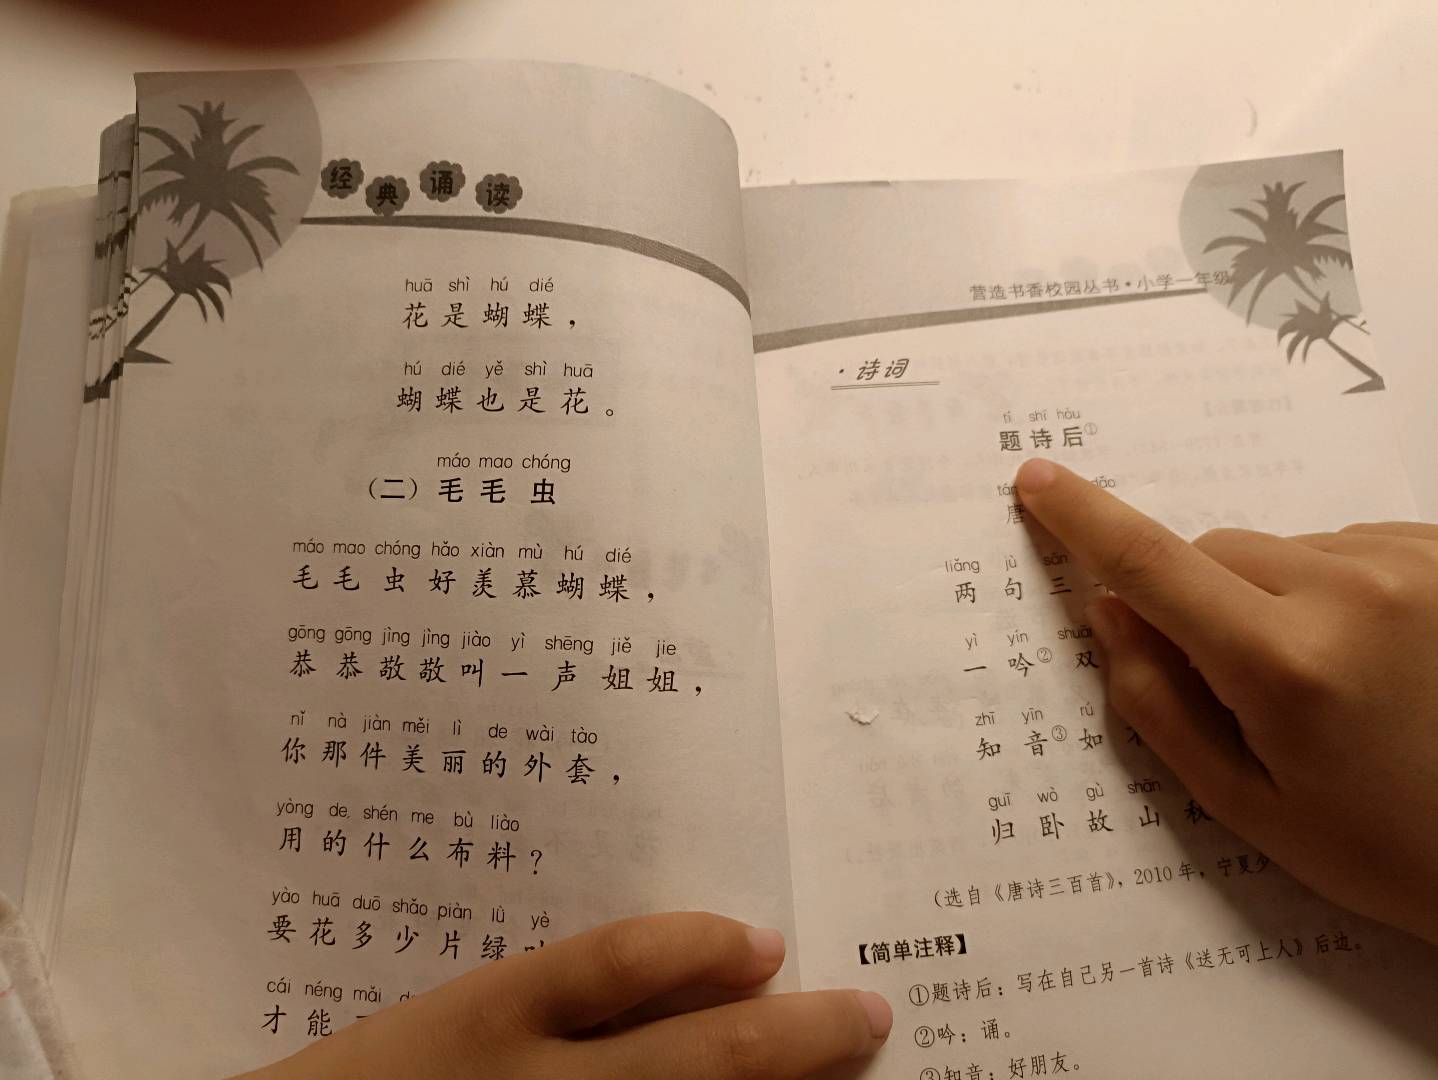 经典诵读
huā shì hú dié
花是蝴蝶，
hú dié yě shì huā
蝴蝶也是花。
máo mao chóng
（二）毛毛虫
máo mao chóng hǎo xiàn mù hú dié
毛毛虫好羡慕蝴蝶，
gōng gōng jìng jìng jiào yì shēng jiě jie
恭恭敬敬叫一声姐姐，
nǐ nà jiàn měi lì de wài tào
你那件美丽的外套，
yòng de shén me bù liào
用的什么布料？
yào huā duō shǎo piàn lǜ yè
要花多少片绿
cái néng mǎi
才能
营造书香校园丛书·小学一年级
·诗词
tí shī hòu
题诗后①
dǎo
唐
liǎng jù sān
两句三
yì yín
一吟②双
zhī yīn rú
知音③如
guī wò gù shān
归卧故山秋
（选自《唐诗三百首》，2010年，宁夏少
【简单注释】
①题诗后：写在自己另一首诗《送无可上人》后边。
②吟：诵。
③知音：好朋友。